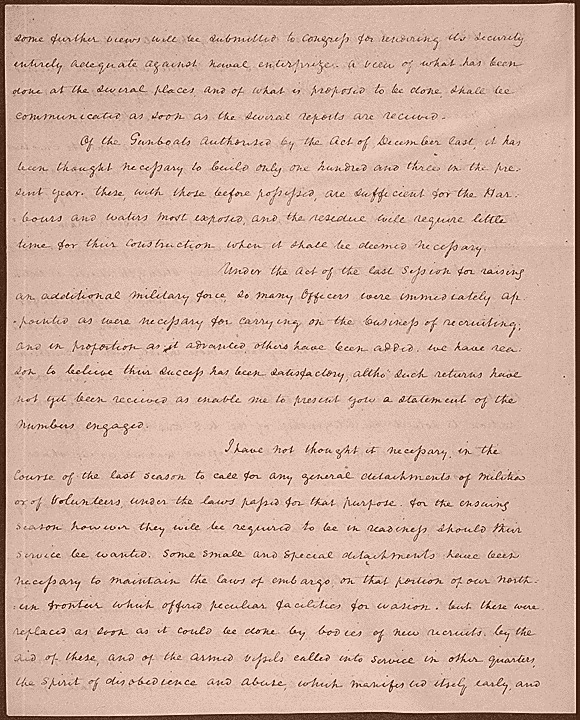 some further views will be submitted to Congress for rendering its security
entirely adequate against naval enterprize. a view of what has been
done at the several places, and of what is proposed to be done, shall be
communicated as soon as the several reports are recieved.
Of the Gunboats authorised by the Act of December last, it has
been thought necessary to build only one hundred and three in the pre-
sent year. these, with those before possessed, are sufficient for the Har-
-bours and waters most exposed, and the residue will require little
time for their construction when it shall be deemed necessary.
Under the Act of the last Session for raising
an additional military force, so many Officers were immediately ap-
-pointed as were necessary for carrying on the business of recruiting,
and in proportion as it advanced, others have been added. we have rea-
son to believe their success has been satisfactory, altho' such returns have
not yet been recieved as enable me to present you a statement of the
numbers engaged.
I have not thought it necessary, in the
course of the last season to call for any general detachments of militia
or of Volunteers, under the laws passed for that purpose. for the ensuing
season however they will be required to be in readiness should their
service be wanted. some small and special detachments have been
necessary to maintain the laws of embargo, on that portion of our North-
-ern frontier which offered peculiar facilities for evasion. but these were
replaced as soon as it could be done by bodies of new recruits. by the
aid of these, and of the armed vessels called into service in other quarters,
the spirit of disobedience and abuse, which manifested itself early, and